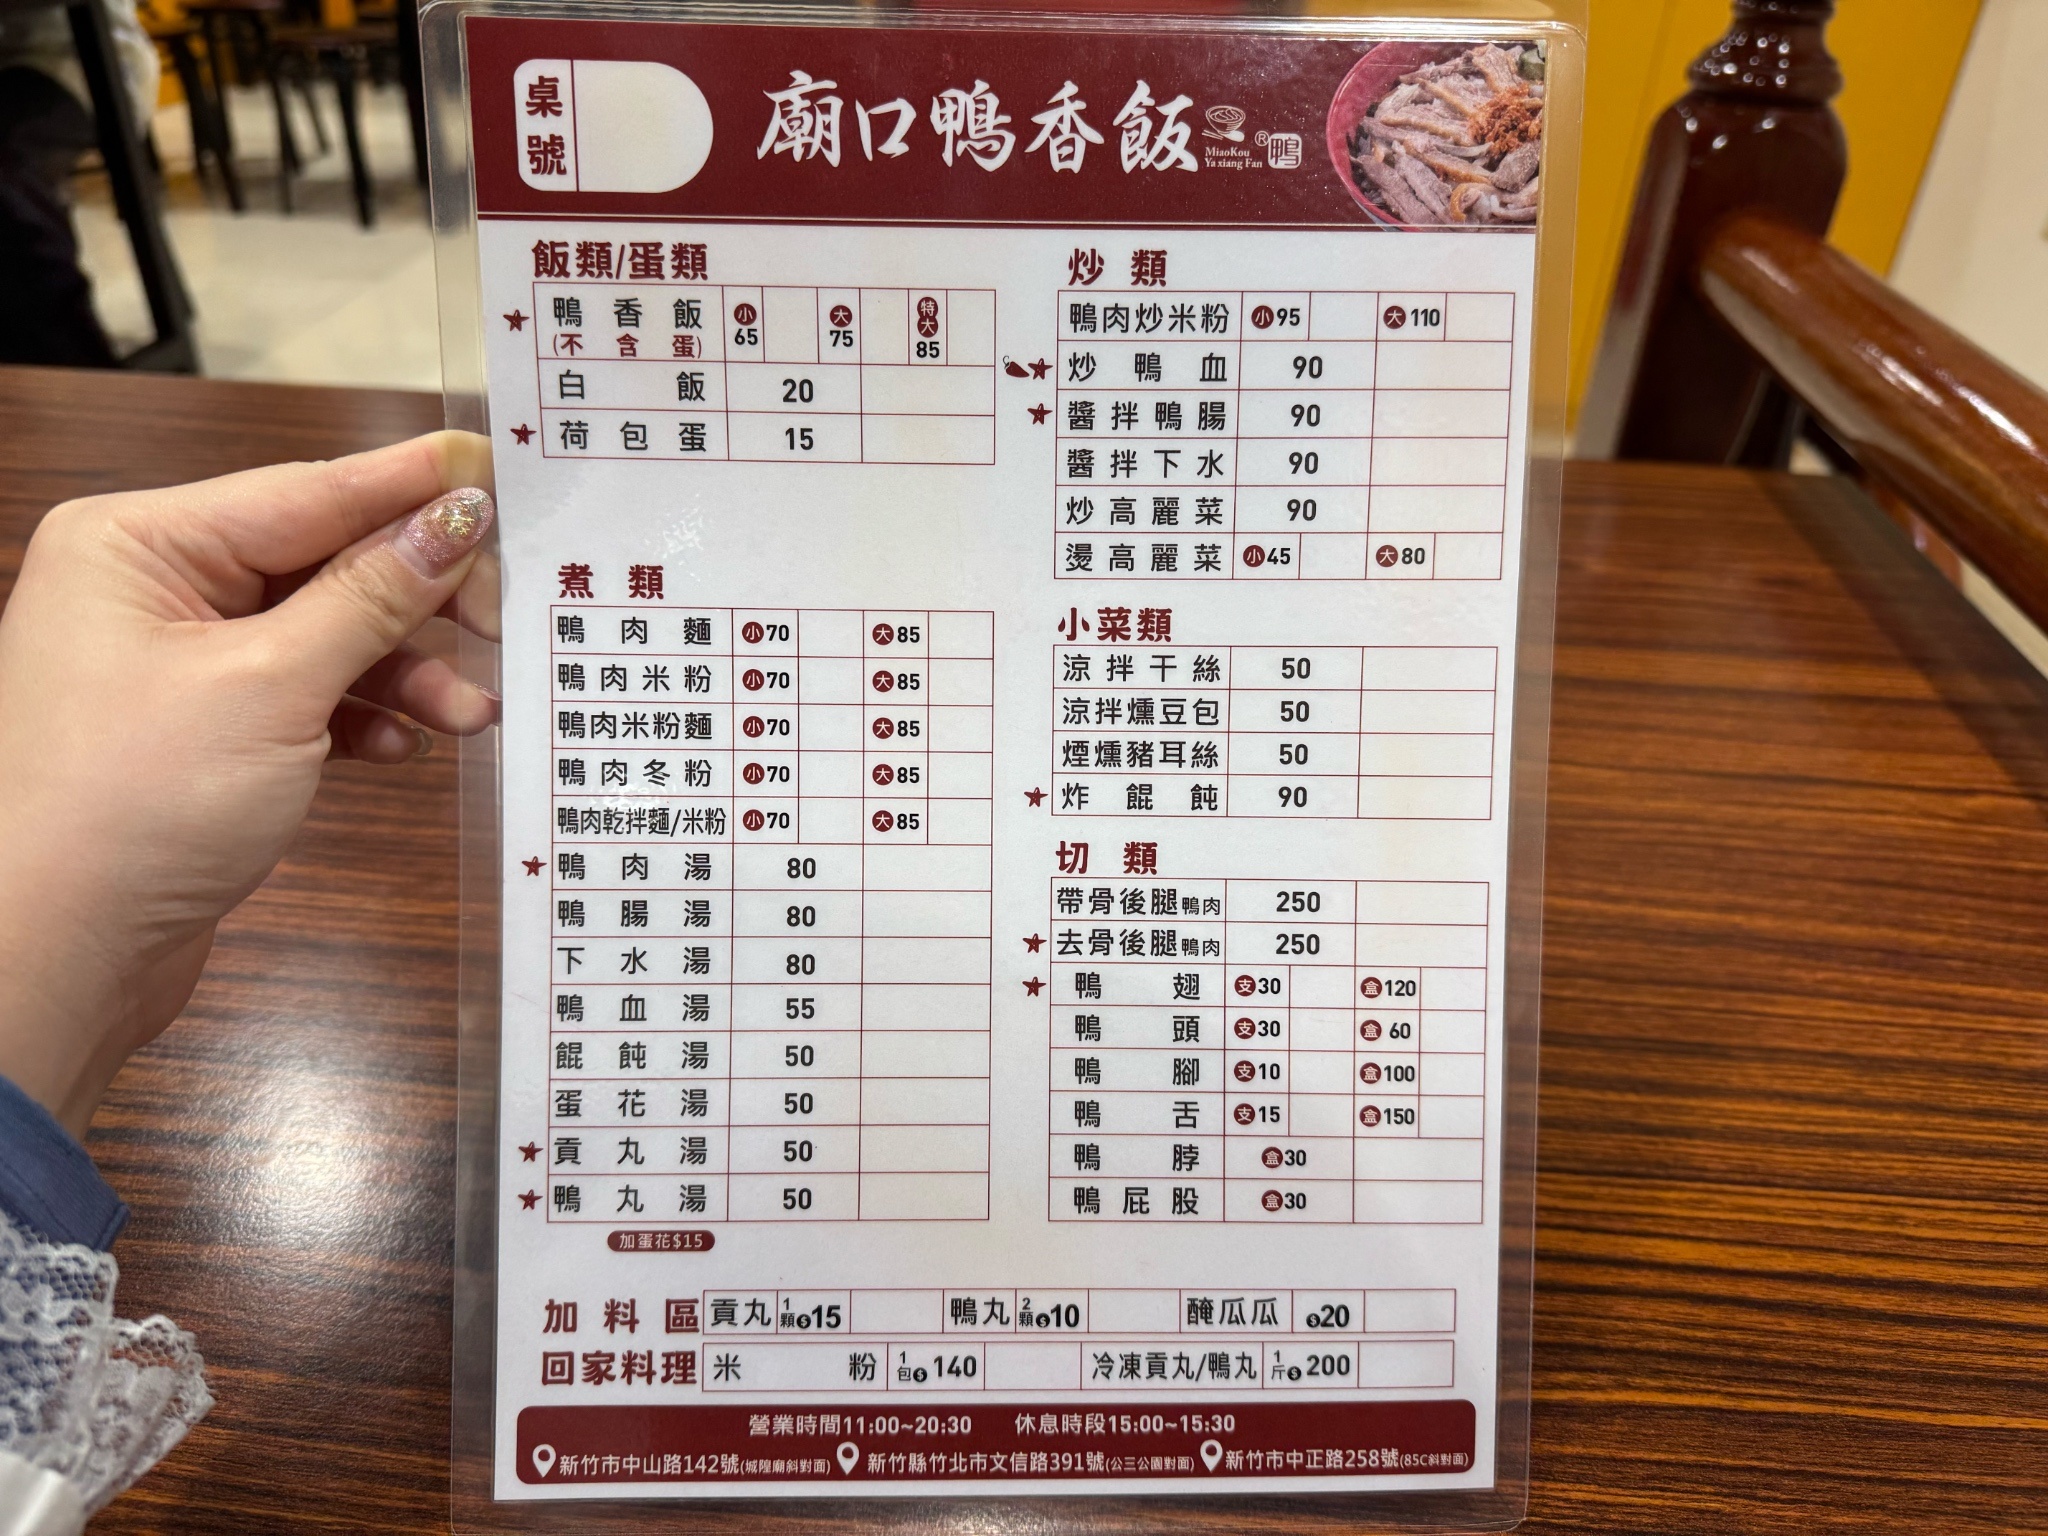 桌號
廟口鴨香飯
MiaoKou
Ya xiang Fan
®
鴨
飯類/蛋類
鴨香飯(不含蛋) 小65 大75 特大85
白飯 20
荷包蛋 15
煮類
鴨肉麵 小70 大85
鴨肉米粉 小70 大85
鴨肉米粉麵 小70 大85
鴨肉冬粉 小70 大85
鴨肉乾拌麵/米粉 小70 大85
鴨肉湯 80
鴨腸湯 80
下水湯 80
鴨血湯 55
餛飩湯 50
蛋花湯 50
貢丸湯 50
鴨丸湯 50
加蛋花$15
炒類
鴨肉炒米粉 小95 大110
炒鴨血 90
醬拌鴨腸 90
醬拌下水 90
炒高麗菜 90
燙高麗菜 小45 大80
小菜類
涼拌干絲 50
涼拌燻豆包 50
煙燻豬耳絲 50
炸餛飩 90
切類
帶骨後腿鴨肉 250
去骨後腿鴨肉 250
鴨翅 支30 盒120
鴨頭 支30 盒60
鴨腳 支10 盒100
鴨舌 支15 盒150
鴨脖 盒30
鴨屁股 盒30
加料區 貢丸 1顆$15 鴨丸 2顆$10 醃瓜瓜 $20
回家料理 米粉 1包$140 冷凍貢丸/鴨丸 1斤$200
營業時間11:00~20:30 休息時段15:00~15:30
新竹市中山路142號(城隍廟斜對面) 新竹縣竹北市文信路391號(公三公園對面) 新竹市中正路258號(85C斜對面)